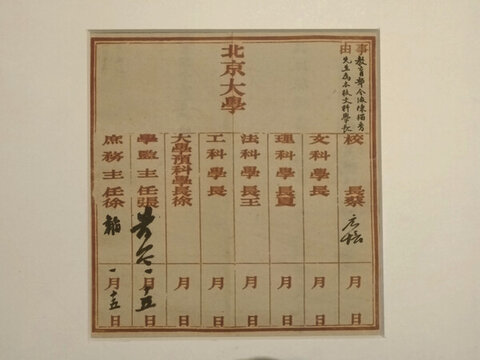 事由
教育部令派陳獨秀
先生為本校文科學長
北京大學
校長蔡
文科學長
理科學長夏
法科學長王
工科學長
大學預科學長徐
學監主任張
庶務主任徐
月日
月日
月日
月日
月日
月日
一月十五日
一月十五日